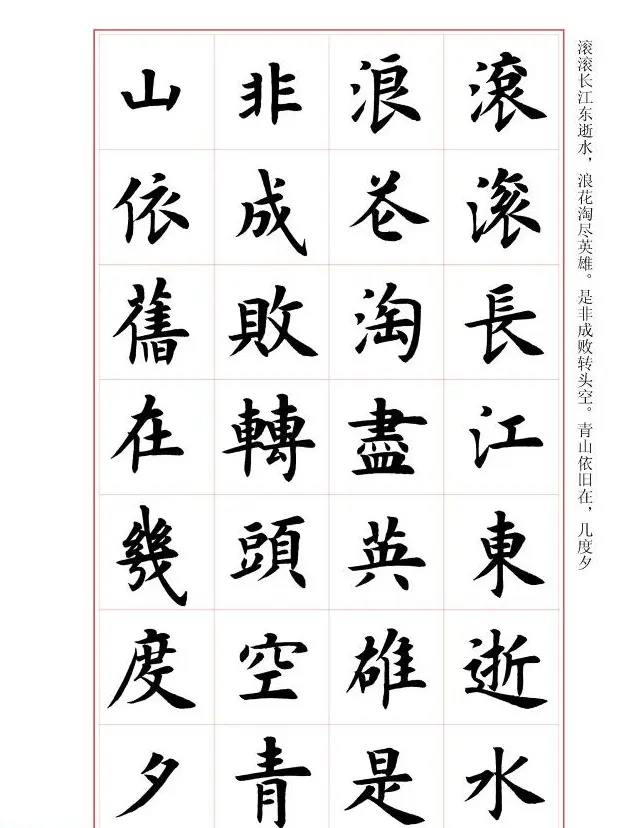 滚滚长江东逝水，浪花淘尽英雄。是非成败转头空。青山依旧在，几度夕
滾滚長江東逝水
浪花淘盡英雄是
非成敗轉頭空青
山依舊在幾度夕